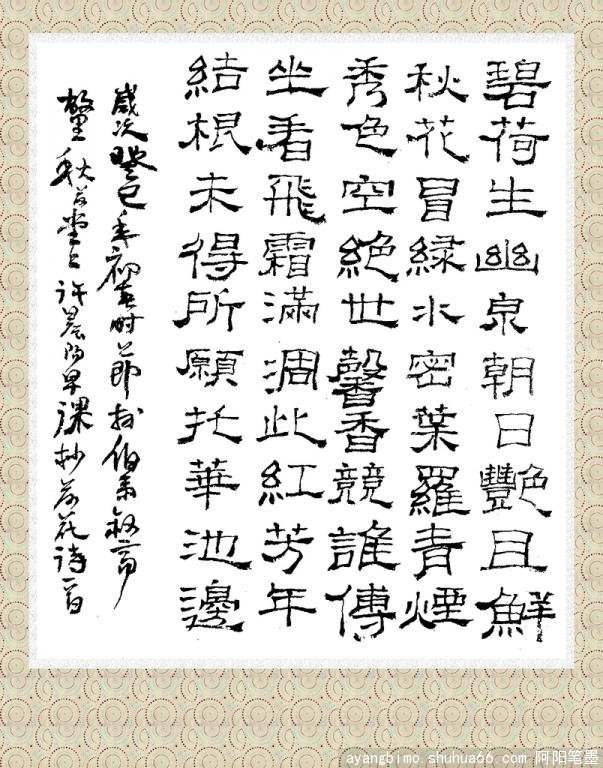 碧荷生幽泉朝日艷且鮮
秋花冒緑水密葉羅青煙
秀色空絶世馨香競誰傳
坐看飛霜滿凋此紅芳年
結根未得所願托華池邊
歲次癸巳年初春時節於
許晨陽早課抄荷花詩一首
ayangbimo.shuhua66.com 阿阳笔墨